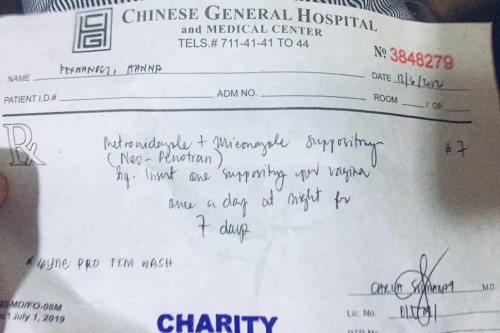 CHINESE GENERAL HOSPITAL
and MEDICAL CENTER
TELS.# 711-41-41 TO 44
CGH
No 3848279
NAME
DATE
PATIENT I.D.#
ADM NO.
ROOM / OF
Rx
Metronidazole + Miconazole suppository #7
(Neo-Penotran)
Sig. Insert one suppository per vagina
once a day at night for
7 days
GYNE PRO FEM WASH
M.D.
Lic. No.
MD/FO-08M
July 1, 2019
CHARITY